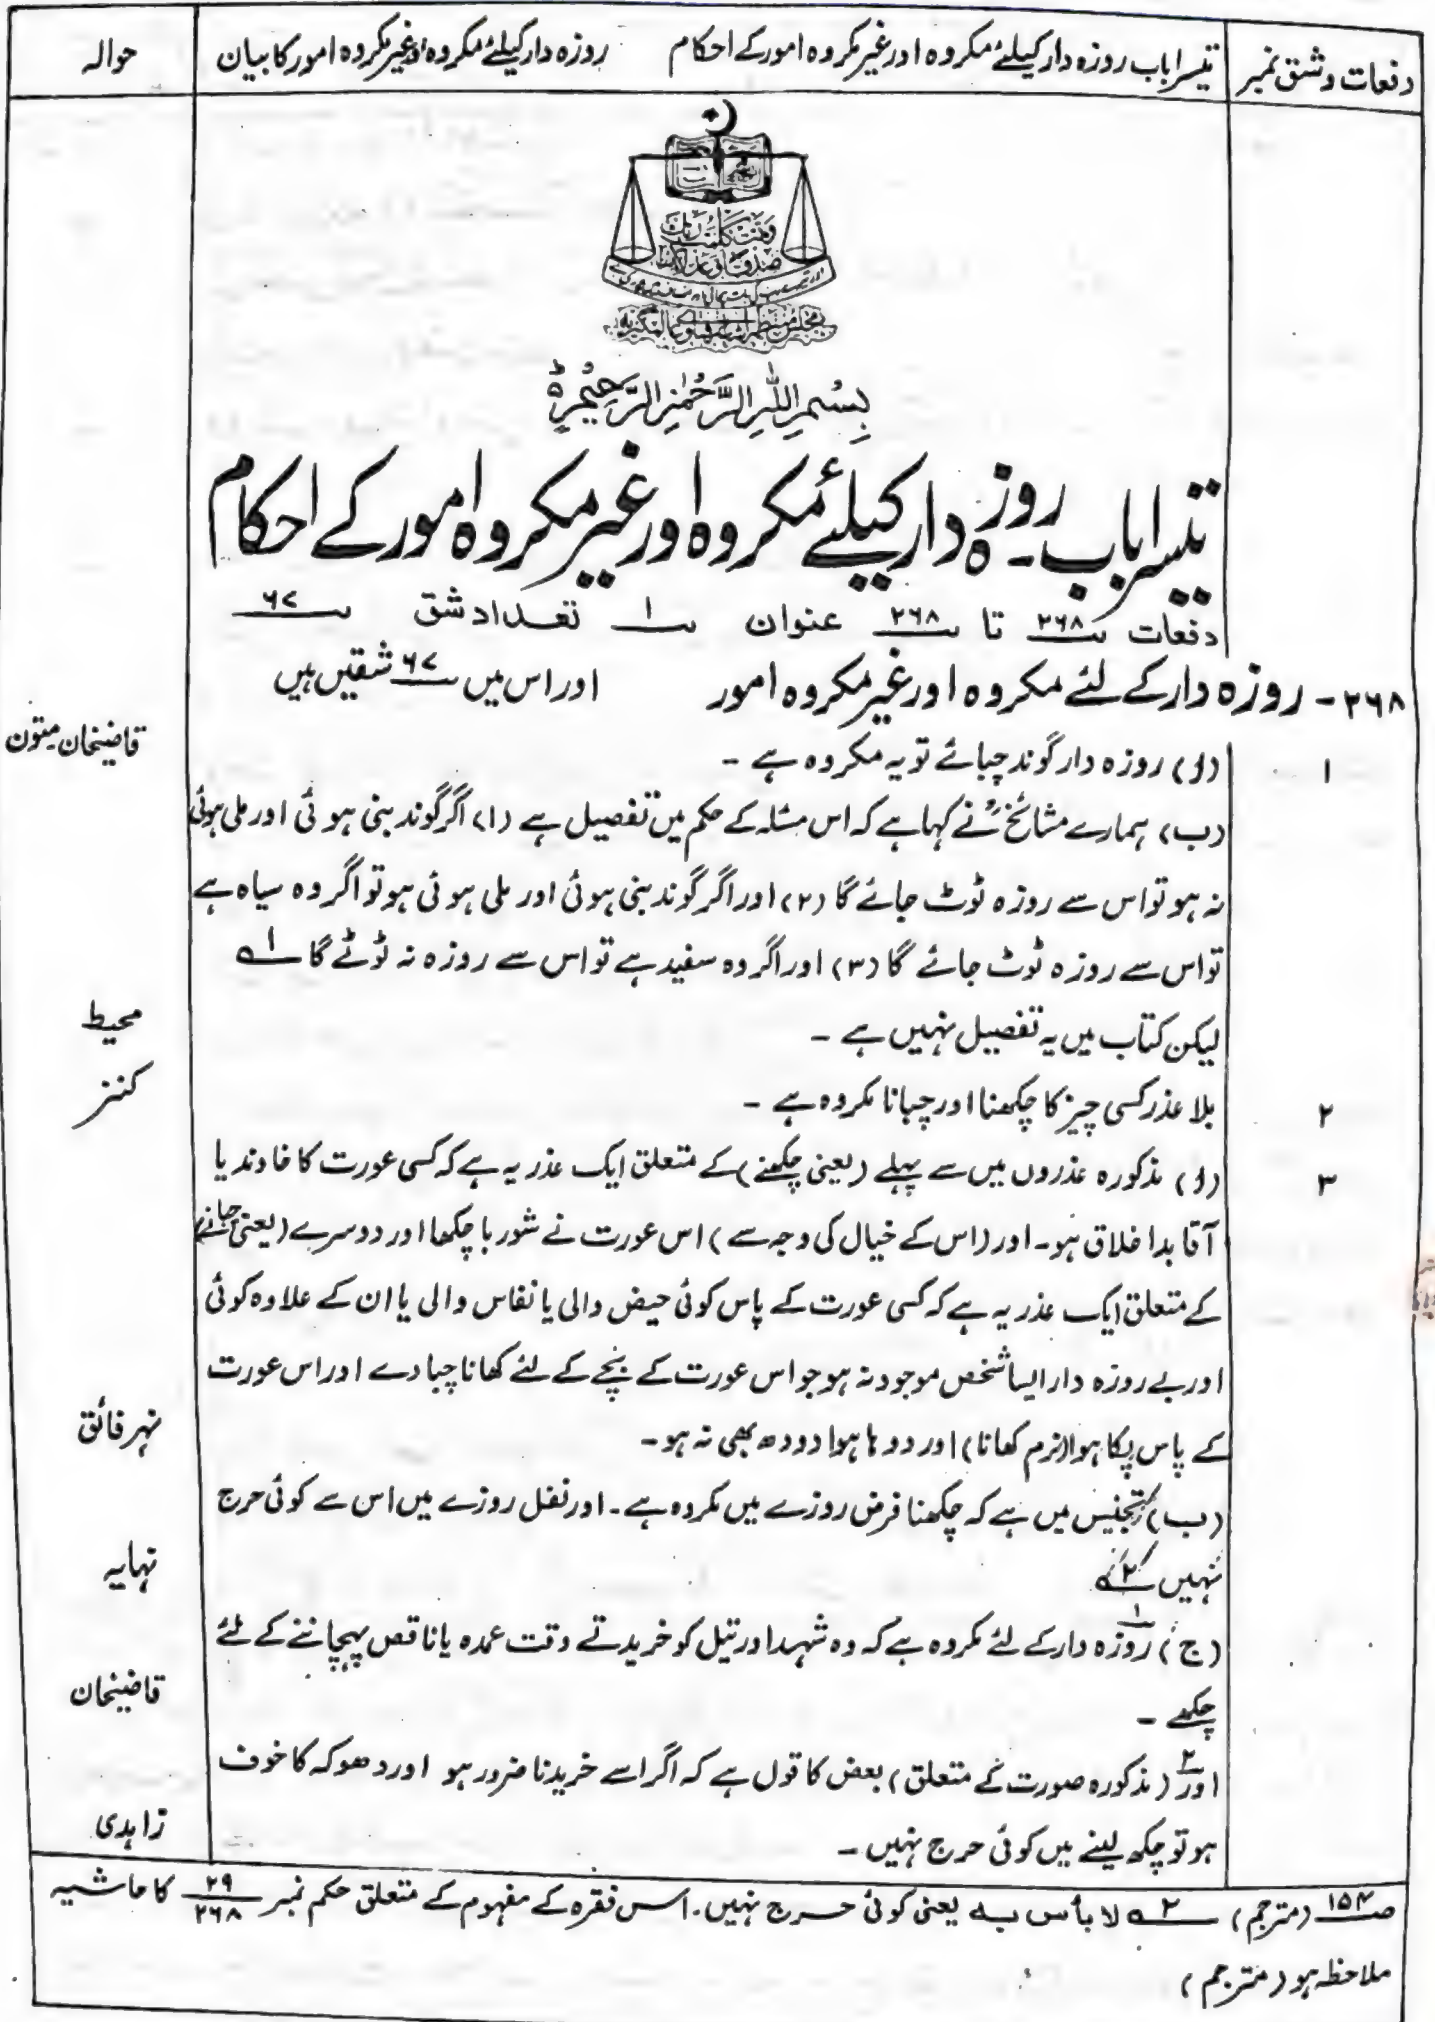 دفعات و شق نمبر تیسرا باب روزہ دار کیلئے مکروہ اور غیر مکروہ امور کے احکام روزہ دار کیلئے مکروہ اور غیر مکروہ امور کا بیان حوالہ
وتمت کلمت ربک
صدقا وعدلا
بِسْمِ اللّٰهِ الرَّحْمٰنِ الرَّحِيْمِ
تیسرا باب۔ روزہ دار کیلئے مکروہ اور غیر مکروہ امور کے احکام
دفعات ۲۶۸ تا ۲۶۸ عنوان ۱ تعداد شق ۶۷
۲۶۸ - روزہ دار کے لئے مکروہ اور غیر مکروہ امور اور اس میں ۶۷ شقیں ہیں
۱ (ا) روزہ دار گوند چبائے تو یہ مکروہ ہے ۔ قاضیخان متون
(ب) ہمارے مشائخؒ نے کہا ہے کہ اس مسئلہ کے حکم میں تفصیل ہے (۱) اگر گوند بنی ہوئی اور ملی ہوئی
نہ ہو تو اس سے روزہ ٹوٹ جائے گا (۲) اور اگر گوند بنی ہوئی اور ملی ہوئی ہو تو اگر وہ سیاہ ہے
تو اس سے روزہ ٹوٹ جائے گا (۳) اور اگر وہ سفید ہے تو اس سے روزہ نہ ٹوٹے گا ۱ہ
لیکن کتاب میں یہ تفصیل نہیں ہے ۔ محیط
۲ بلا عذر کسی چیز کا چکھنا اور چبانا مکروہ ہے ۔ کنز
۳ (ا) مذکورہ عذروں میں سے پہلے (یعنی چکھنے) کے متعلق ایک عذر یہ ہے کہ کسی عورت کا خاوند یا
آقا بداخلاق ہو۔ اور (اس کے خیال کی وجہ سے) اس عورت نے شوربا چکھا اور دوسرے (یعنی چبانے)
کے متعلق ایک عذر یہ ہے کہ کسی عورت کے پاس کوئی حیض والی یا نفاس والی یا ان کے علاوہ کوئی
اور بے روزہ دار ایسا شخص موجود نہ ہو جو اس عورت کے بچے کے لئے کھانا چبا دے اور اس عورت
کے پاس پکا ہوا (نرم کھانا) اور دوہا ہوا دودھ بھی نہ ہو۔ نہر فائق
(ب) تجنیس میں ہے کہ چکھنا فرض روزے میں مکروہ ہے۔ اور نفل روزے میں اس سے کوئی حرج
نہیں ۲ہ نہایہ
(ج) ۱ روزہ دار کے لئے مکروہ ہے کہ وہ شہد اور تیل کو خریدتے وقت عمدہ یا ناقص پہچاننے کے لئے
چکھے ۔ قاضیخان
۲ اور (مذکورہ صورت کے متعلق) بعض کا قول ہے کہ اگر اسے خریدنا ضرور ہو اور دھوکہ کا خوف
ہو تو چکھ لینے میں کوئی حرج نہیں ۔ زاہدی
صـ۱۵۴ (مترجم) ۲ہ لا بأس بہ یعنی کوئی حرج نہیں۔ اس فقرہ کے مفہوم کے متعلق حکم نمبر ۲۹/۲۶۸ کا حاشیہ
ملاحظہ ہو (مترجم)